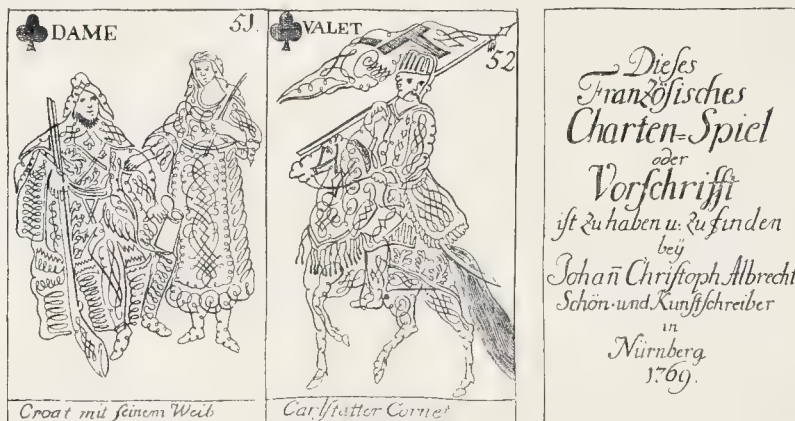 DAME
51.
Croat mit ſeinem Weib
VALET
52
Carlſtatter Cornet
Dieſes
Franzöſiſches
Charten=Spiel
oder
Vorſchrifft
iſt zu haben u: zu finden
beÿ
Johañ Chriſtoph Albrecht
Schön-und Kunſtſchreiber
in
Nürnberg
1769.